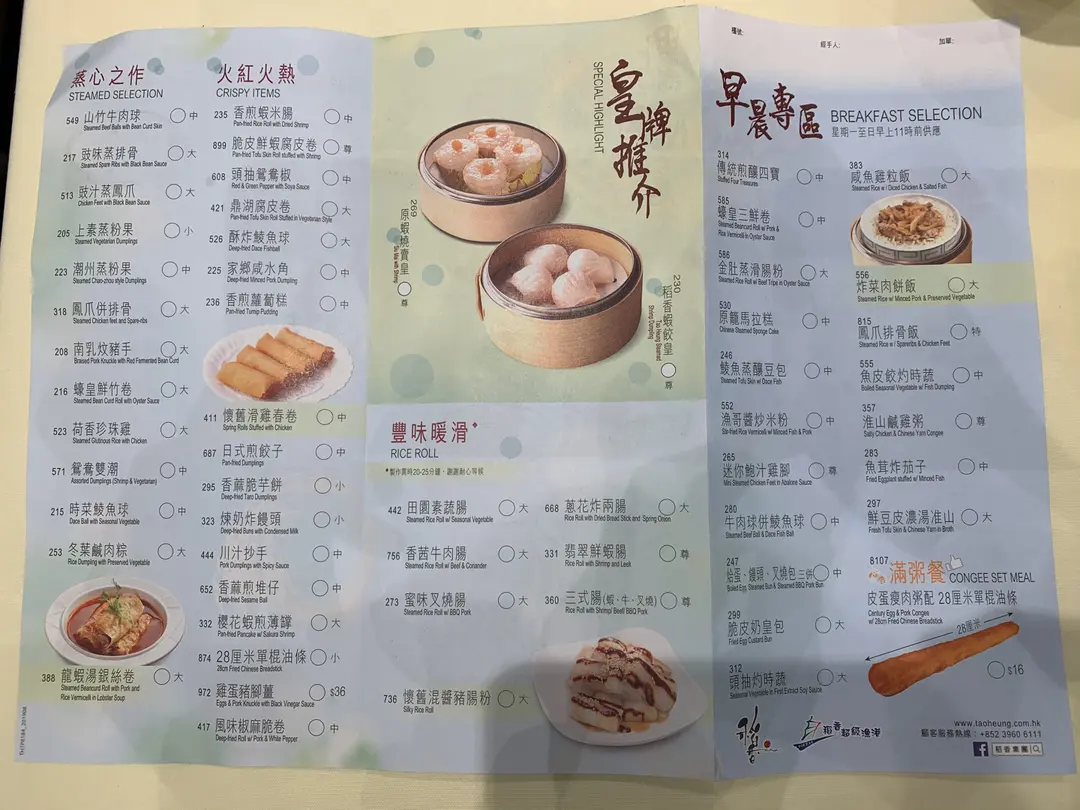 蒸心之作
STEAMED SELECTION
549 山竹牛肉球 中
Steamed Beef Balls with Bean Curd Skin
217 豉味蒸排骨 大
Steamed Spare Ribs with Black Bean Sauce
513 豉汁蒸鳳爪 大
Chicken Feet with Black Bean Sauce
205 上素蒸粉果 小
Steamed Vegetarian Dumplings
223 潮州蒸粉果 中
Steamed Chan-zhou style Dumplings
318 鳳爪併排骨 大
Steamed Chicken feet and Spare-ribs
208 南乳炆豬手 大
Braised Pork Knuckle with Red Fermented Bean Curd
216 蠔皇鮮竹卷 大
Steamed Bean Curd Roll with Oyster Sauce
523 荷香珍珠雞 大
Steamed Glutinous Rice with Chicken
571 鴛鴦雙潮 中
Assorted Dumplings (Shrimp & Vegetarian)
215 時菜鯪魚球 中
Dace Ball with Seasonal Vegetable
253 冬葉鹹肉粽 大
Rice Dumpling with Preserved Vegetable
388 龍蝦湯銀絲卷 大
Steamed Beancurd Roll with Pork and
Rice Vermicelli in Lobster Soup
火紅火熱
CRISPY ITEMS
235 香煎蝦米腸 中
Pan-fried Rice Roll with Dried Shrimp
899 脆皮鮮蝦腐皮卷 尊
Pan-fried Tofu Skin Roll stuffed with Shrimp
608 頭抽鴛鴦椒 中
Red & Green Pepper with Soya Sauce
421 鼎湖腐皮卷 大
Pan-fried Tofu Skin Roll Stuffed in Vegetarian Style
526 酥炸鯪魚球 大
Deep-fried Dace Fishball
225 家鄉咸水角 中
Deep-fried Minced Pork Dumpling
236 香煎蘿蔔糕 中
Pan-fried Turnip Pudding
411 懷舊滑雞春卷 中
Spring Rolls Stuffed with Chicken
687 日式煎餃子 中
Pan-fried Dumplings
295 香蔴脆芋餅 小
Deep-fried Taro Dumplings
323 煉奶炸饅頭 小
Deep-fried Buns with Condensed Milk
444 川汁抄手 中
Pork Dumplings with Spicy Sauce
652 香蔴煎堆仔 中
Deep-fried Sesame Ball
332 櫻花蝦煎薄罉 大
Pan-fried Pancake w/ Sakura Shrimp
874 28厘米單棍油條 小
28cm Fried Chinese Breadstick
972 雞蛋豬腳薑 $36
Eggs & Pork Knuckle with Black Vinegar Sauce
417 風味椒麻脆卷 中
Deep-fried Roll w/ Pork & White Pepper
皇牌推介
SPECIAL HIGHLIGHT
269
原蝦燒賣皇 尊
Siu Mai with Shrimp
230
稻香蝦餃皇 尊
Tao Heung Steamed
Shrimp Dumpling
豐味暖滑
RICE ROLL
*製作需時20-25分鐘，謝謝耐心等候
442 田園素蔬腸 大
Steamed Rice Roll w/ Seasonal Vegetable
756 香茜牛肉腸 大
Steamed Rice Roll w/ Beef & Coriander
273 蜜味叉燒腸 大
Steamed Rice Roll w/ BBQ Pork
736 懷舊混醬豬腸粉 大
Silky Rice Roll
668 蔥花炸兩腸 大
Rice Roll with Dried Bread Stick and Spring Onion
331 翡翠鮮蝦腸 尊
Rice Roll with Shrimp and Leek
360 三式腸(蝦、牛、叉燒) 尊
Rice Roll with Shrimp/ Beef/ BBQ Pork
檯號:
經手人:
加單:
早晨專區
BREAKFAST SELECTION
星期一至日早上11時前供應
314
傳統煎釀四寶 中
Stuffed Four Treasures
585
蠔皇三鮮卷 中
Steamed Beancurd Roll w/ Pork &
Rice Vermicelli in Oyster Sauce
586
金肚蒸滑腸粉 大
Steamed Rice Roll w/ Beef Tripe in Oyster Sauce
530
原籠馬拉糕 中
Chinese Steamed Sponge Cake
246
鯪魚蒸釀豆包 中
Steamed Tofu Skin w/ Dace Fish
552
漁哥醬炒米粉 中
Stir-fried Rice Vermicelli w/ Minced Fish & Pork
265
迷你鮑汁雞腳 尊
Mini Steamed Chicken Feet in Abalone Sauce
280
牛肉球併鯪魚球 中
Steamed Beef Ball & Dace Fish Ball
247
焗蛋、饅頭、叉燒包三併 中
Baked Egg, Steamed Bun & Steamed BBQ Pork Bun
299
脆皮奶皇包 大
Fried Egg Custard Bun
312
頭抽灼時蔬 大
Seasonal Vegetable in First Extract Soy Sauce
383
咸魚雞粒飯 大
Steamed Rice w / Diced Chicken & Salted Fish
556
炸菜肉餅飯 大
Steamed Rice w / Minced Pork & Preserved Vegetable
815
鳳爪排骨飯 特
Steamed Rice w / Spareribs & Chicken Feet
555
魚皮餃灼時蔬 中
Boiled Seasonal Vegetable w/ Fish Dumpling
357
淮山鹹雞粥 尊
Salty Chicken & Chinese Yam Congee
283
魚茸炸茄子 中
Fried Eggplant stuffed w/ Minced Fish
297
鮮豆皮濃湯淮山 大
Fresh Tofu Skin & Chinese Yam in Broth
8107
滿粥餐 CONGEE SET MEAL
皮蛋瘦肉粥配 28厘米單棍油條
Century Egg & Pork Congee
w/ 28cm Fried Chinese Breadstick
28厘米
$16
稻香超級漁港
www.taoheung.com.hk
顧客服務熱線：+852 3960 6111
稻香集團